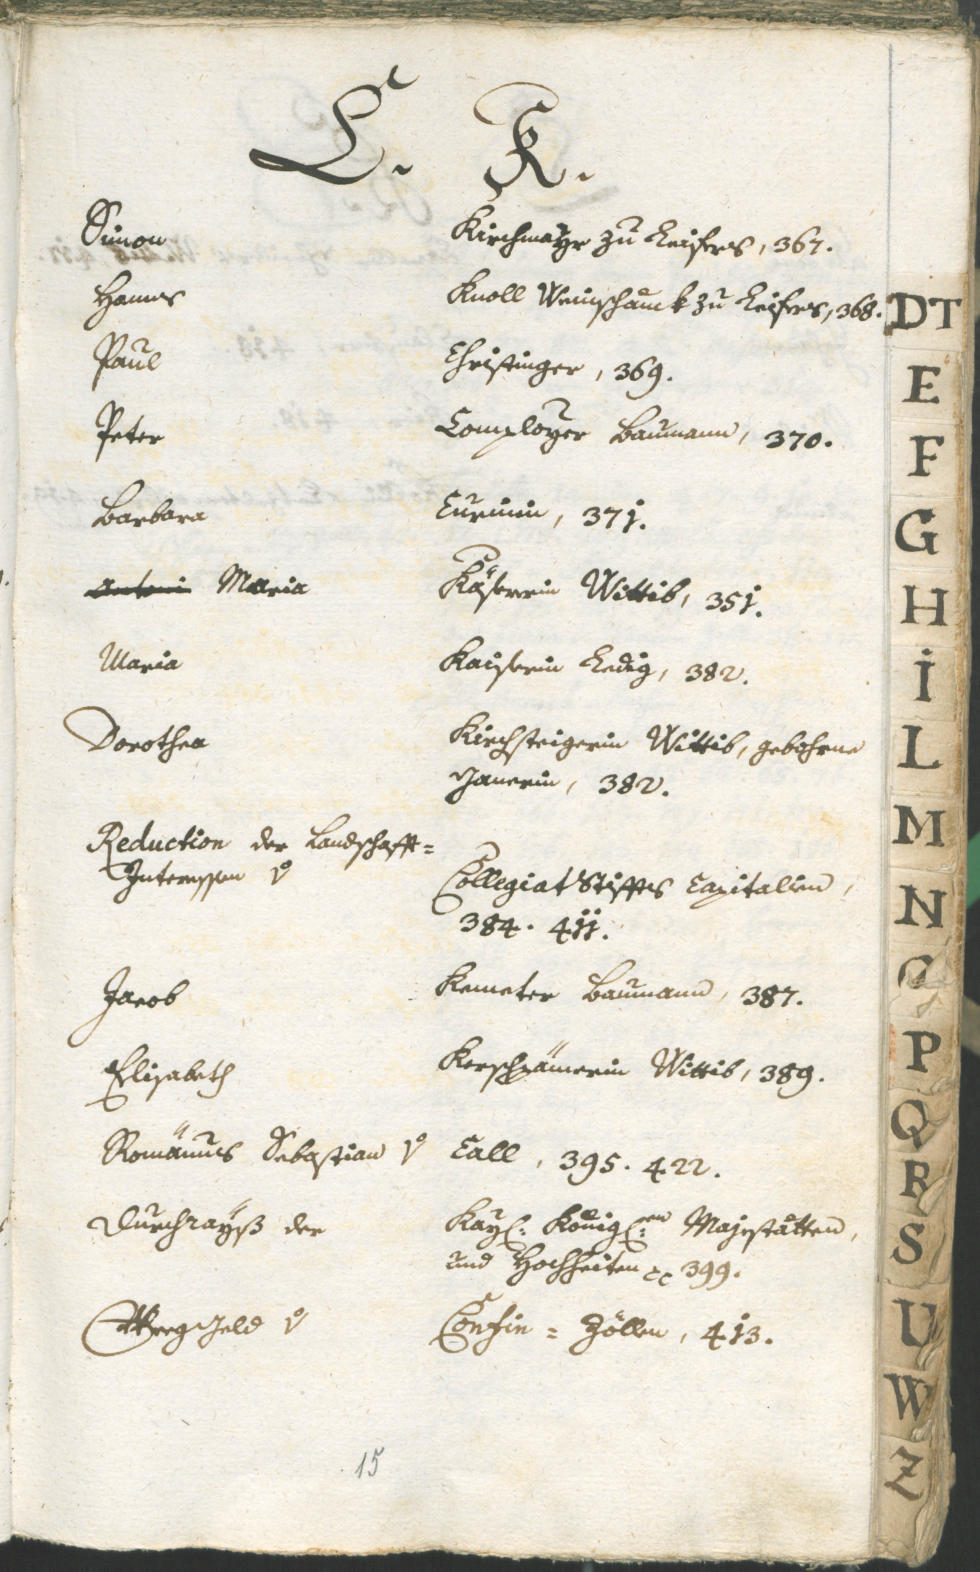 C. K.
Simon Kirchmaÿr zu Leifers, 367.
Hanns Knoll Weinschanckh zu Leifers, 368.
Paul Christinger, 369.
Peter Comployer Baumann, 370.
Barbara 371.
Antoni Maria Käserin Wittib, 351.
Maria Kaiserin Ledig, 382.
Dorothea Kirchsteigerin Wittib, gebohrne
382.
Reduction der Landschafft=
Interessen Vo Collegiat Stiffts Capitalien,
384. 411.
Jacob Kemeter Baumann, 387.
Elisabeth Kerschpamerin Wittib, 389.
Sebastian Vo Call, 395. 422.
Durchrayß der Kaÿl: Königl:en Majestätten,
und Hochheiten 399.
Weeg Geld Vo Confin = Zöllen, 413.
15
DT
E
F
G
H
I
L
M
N
O
P
Q
R
S
U
W
Z